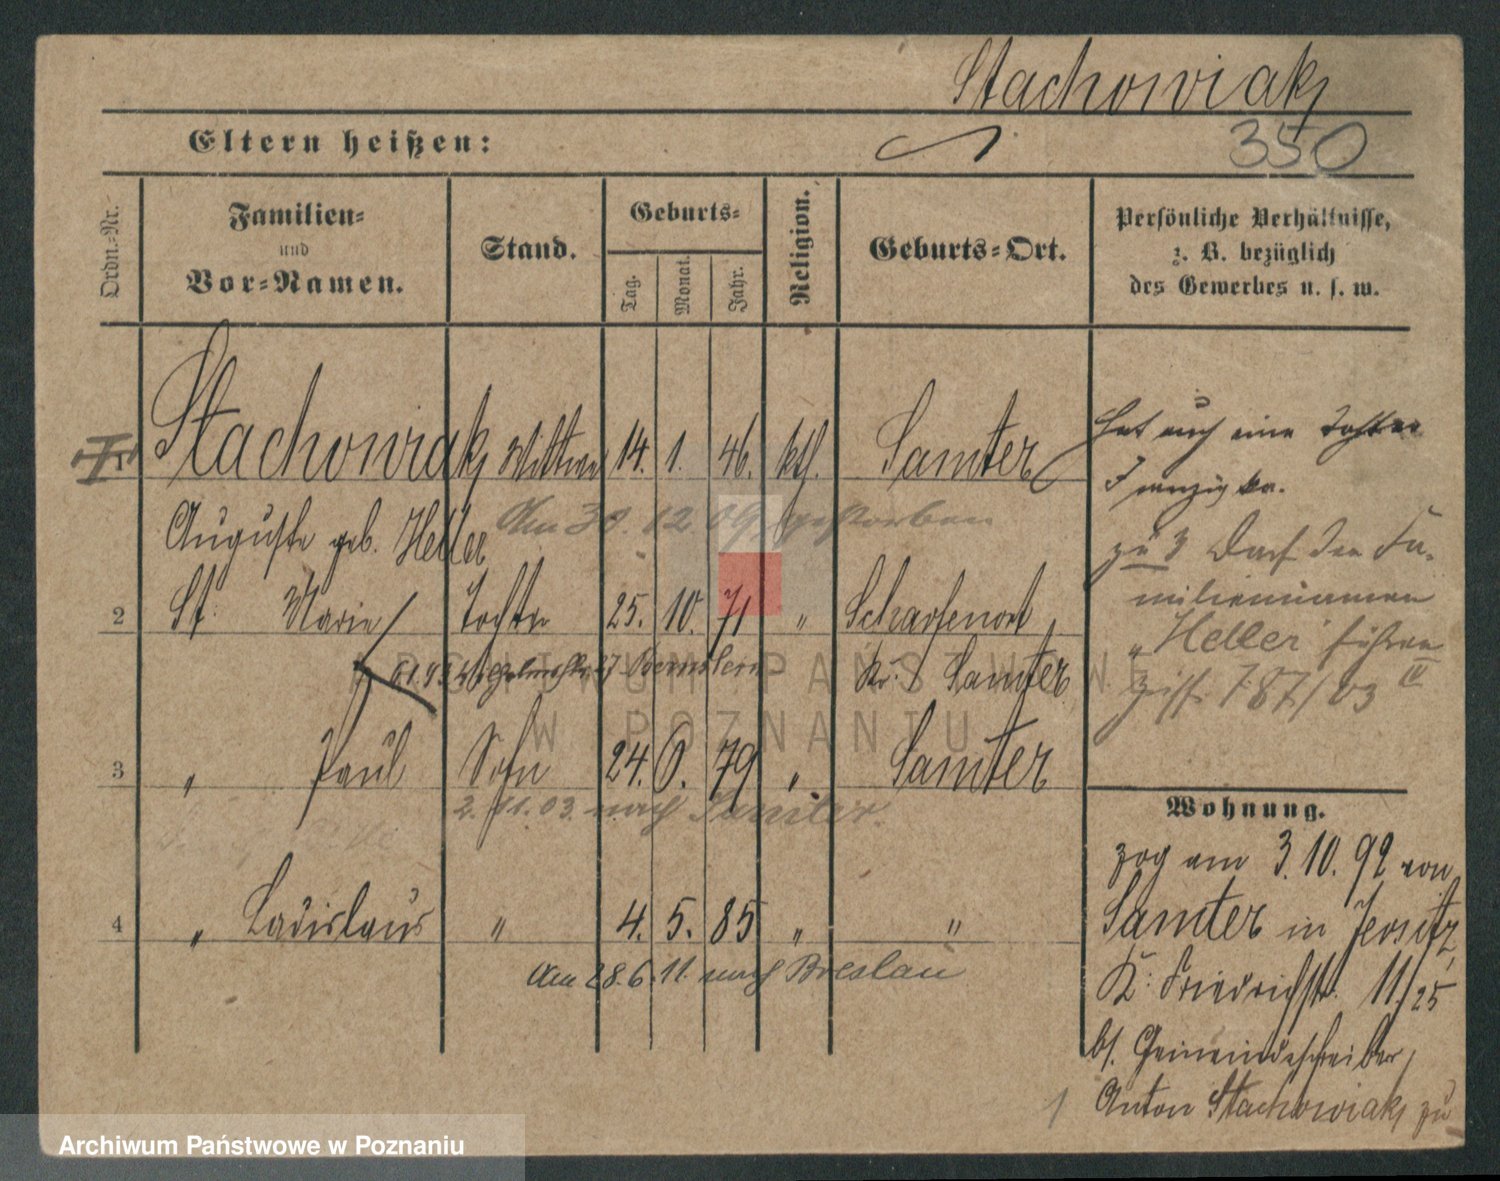 Stachowiak
350
Eltern heißen:
Ordn.-Nr.
Familien- und Vor-Namen.
Stand.
Geburts-
Tag.
Monat.
Jahr.
Religion.
Geburts-Ort.
Persönliche Verhältnisse,
z. B. bezüglich
des Gewerbes u. s. w.
1 Stachowiak Wittwe 14. 1. 46. kth. Samter
Auguste geb. Heller
Am 30.12.09 gestorben
2 St. Marie Tochter 25. 10. 71 " Scharfenort
Kr. Samter
3 " Paul Sohn 24. 6. 79 " Samter
2.11.03 nach Samter.
4 " Ladislaus " 4. 5. 85 " "
Am 28.6.11. nach Breslau
Hat auch eine Tochter
Franziska.
zu 3 Darf den Fa-
miliennamen
"Heller" führen
787/03 IV
Wohnung.
zog am 3.10.92 von
Samter in Jersitz,
K. Friedrichstr. 11/25
bs. Gemeindeschreiber
Anton Stachowiak zu
ARCHIWUM PAŃSTWOWE
W POZNANIU
Archiwum Państwowe w Poznaniu